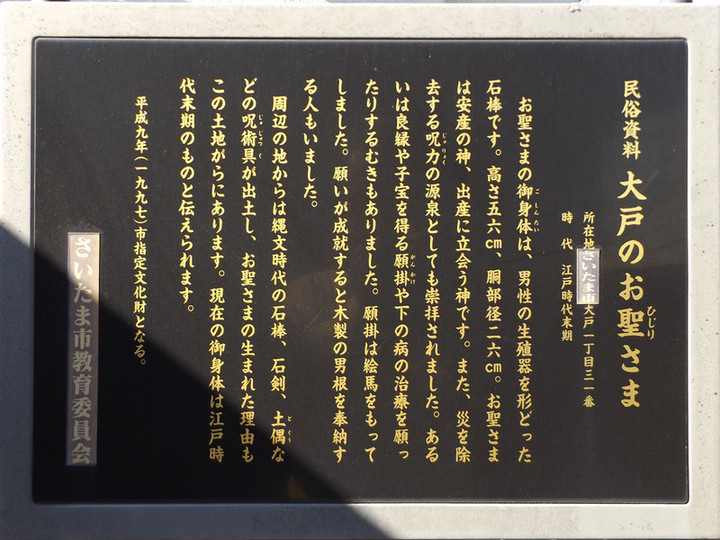 民俗資料 大戸のお聖さま
ひじり
所在地 さいたま市大戸一丁目三一番
時代 江戸時代末期
お聖さまの御身体は、男性の生殖器を形どった
ごしんたい
石棒です。高さ五六cm、胴部径二六cm。お聖さま
は安産の神、出産に立会う神です。また、災を除
去する呪力の源泉としても崇拝されました。ある
じゅりょく
いは良縁や子宝を得る願掛や下の病の治療を願っ
がんかけ
たりするむきもありました。願掛は絵馬をもって
しました。願いが成就すると木製の男根を奉納す
る人もいました。
周辺の地からは縄文時代の石棒、石剣、土偶な
どぐう
どの呪術具が出土し、お聖さまの生まれた理由も
じゅじゅつぐ
この土地がらにあります。現在の御身体は江戸時
代末期のものと伝えられます。
平成九年(一九九七)市指定文化財となる。
さいたま市教育委員会